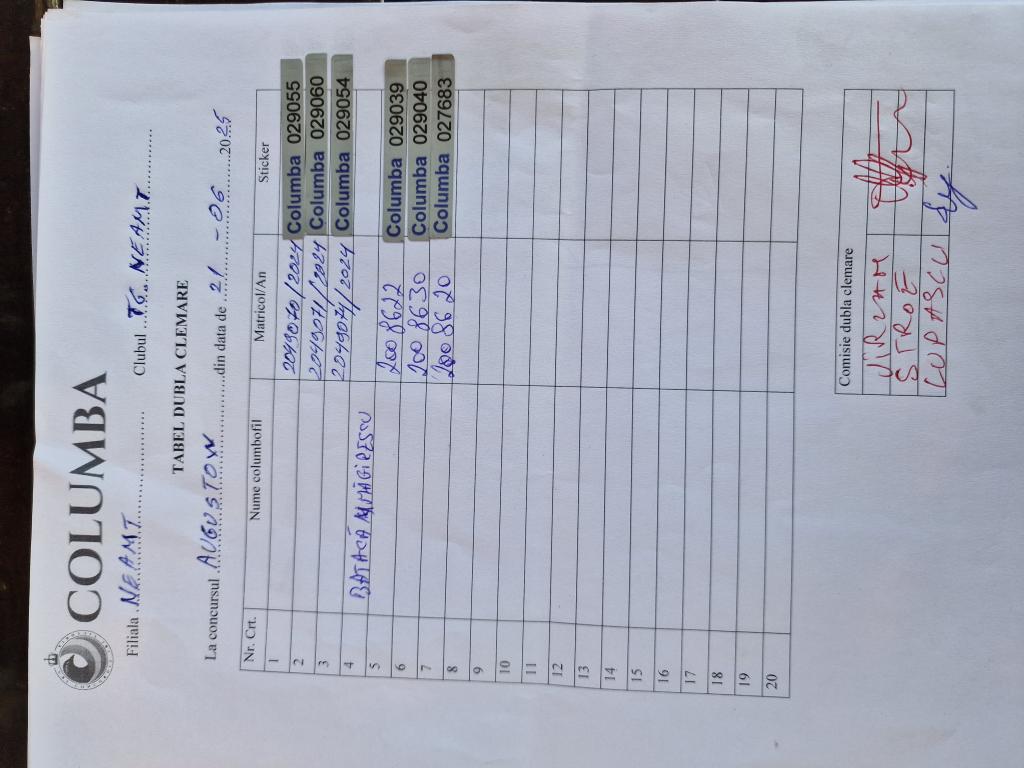 COLUMBA
Filiala NEAMT Clubul TG. NEAMT
TABEL DUBLA CLEMARE
La concursul AUGUSTON din data de 21-06 2025
Nr. Crt. Nume columbofil Matricol/An Sticker
1 2049070/2024 Columba 029055
2 2049071/2024 Columba 029060
3 2049074/2024 Columba 029054
4 BATACĂ MĂGIRESCU
5 2008622 Columba 029039
6 2008630 Columba 029040
7 2008620 Columba 027683
8
9
10
11
12
13
14
15
16
17
18
19
20
Comisie dubla clemare
STROE
LUPASCU